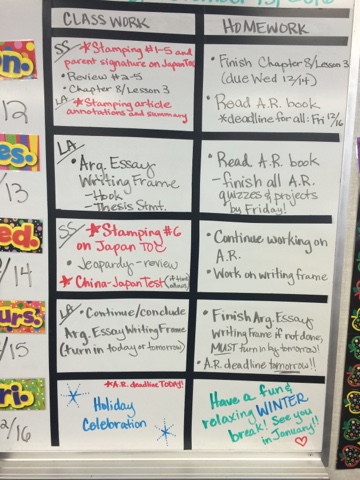 CLASS WORK
HOMEWORK
on.
12
SS * Stamping #1-5 and
parent signature on Japan TOC
• Review #2-5
• Chapter 8/Lesson 3
LA * Stamping article
annotations and summary
• Finish Chapter 8/Lesson 3
(due Wed 12/14)
• Read A.R. book
*deadline for all: Fri 12/16
es.
13
LA
• Arg. Essay
Writing Frame
- Hook
- Thesis Stmt.
• Read A.R. book
- finish all A.R.
quizzes & projects
by Friday!
ed.
/14
SS * Stamping #6
on Japan TOC
• Jeopardy - review
* China-Japan Test (if time allows)
• Continue working on
A.R.
• Work on writing frame
urs.
/15
LA • Continue/conclude
Arg. Essay Writing Frame
(turn in today or tomorrow)
• Finish Arg. Essay
Writing frame if not done,
MUST turn in by tomorrow!
• A.R. deadline tomorrow!!
ri.
2/16
*A.R. deadline Today!
Holiday
Celebration
Have a fun &
relaxing WINTER
break! See you
in January!!